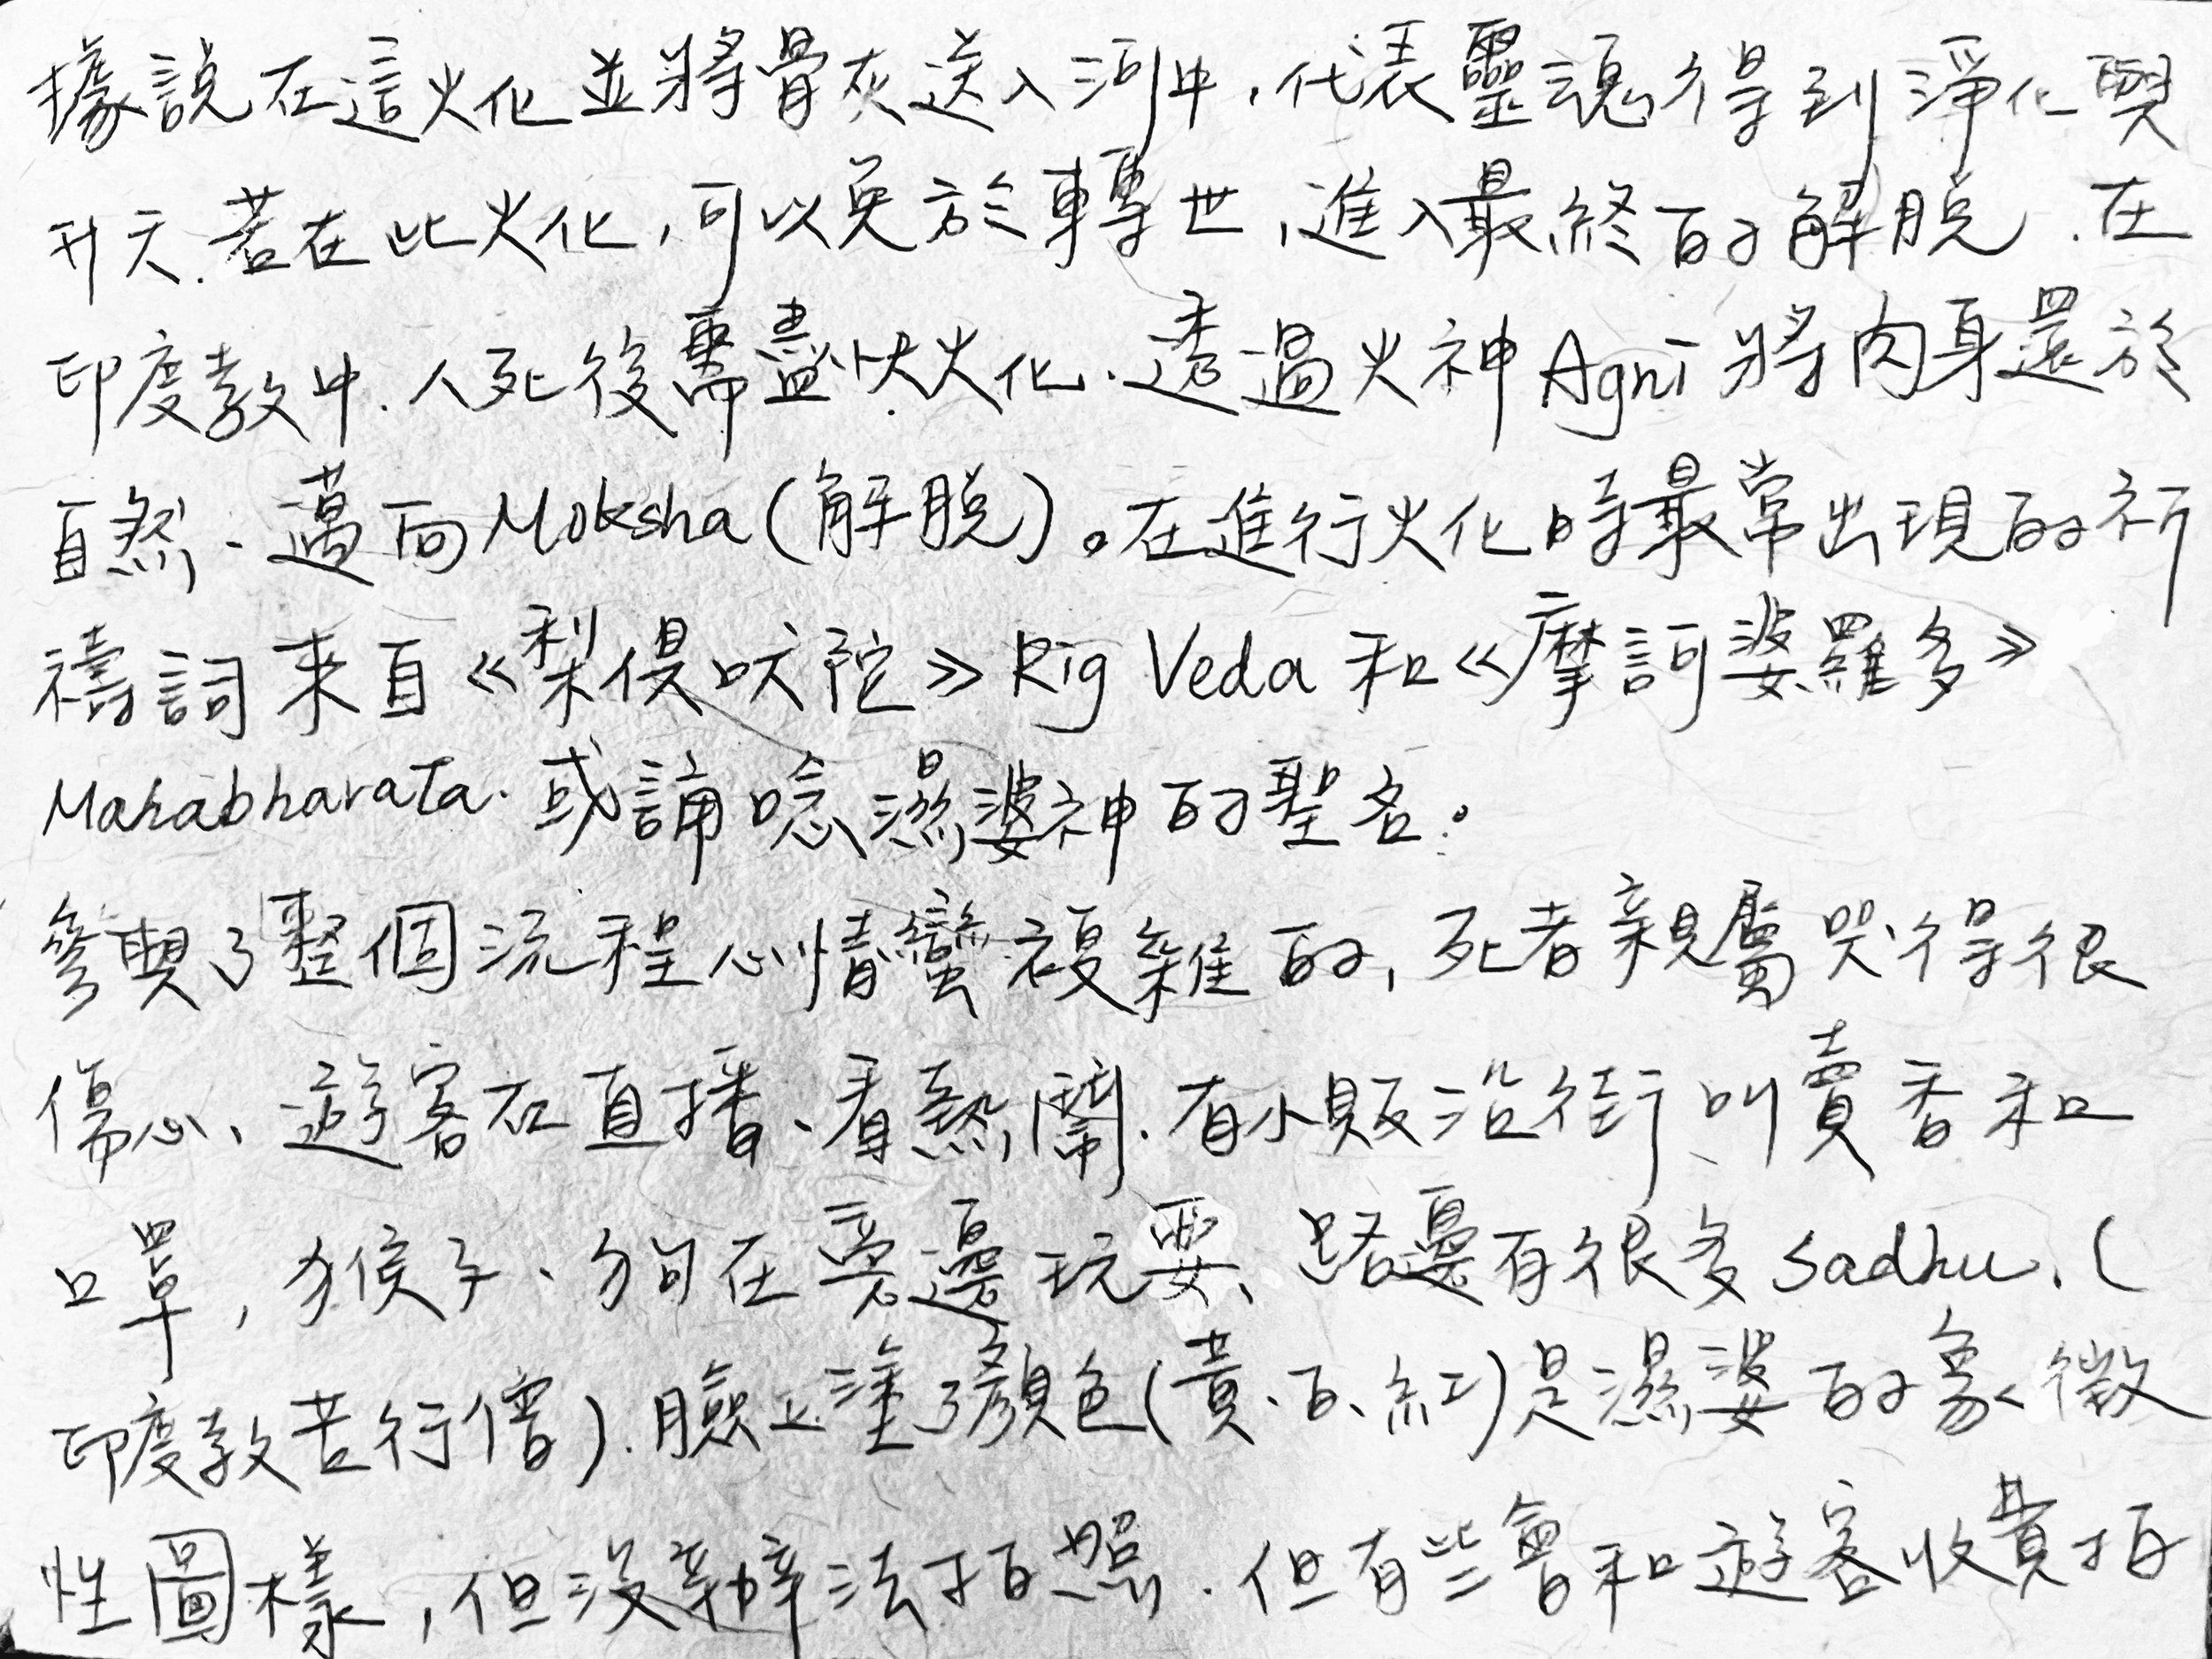 據說在這火化並將骨灰送入河中,代表靈魂得到淨化與
升天.若在此火化,可以免於轉世,進入最終的解脫.在
印度教中.人死後需盡快火化.透過火神Agni將肉身還於
自然、邁向Moksha(解脫)。在進行火化時最常出現的祈
禱詞來自《梨俱吠陀》Rig Veda和《摩訶婆羅多》
Mahabharata.或誦唸濕婆神的聖名。
參與了整個流程心情蠻複雜的,死者親屬哭得很
傷心、遊客在直播、看熱鬧.有小販沿街叫賣香和
口罩,猴子、狗在旁邊玩耍、路邊有很多sadhu.(
印度教苦行僧).臉上塗了顏色(黃、白、紅)是濕婆的象徵
性圖樣,但沒辦法拍照.但有些會和遊客收費拍